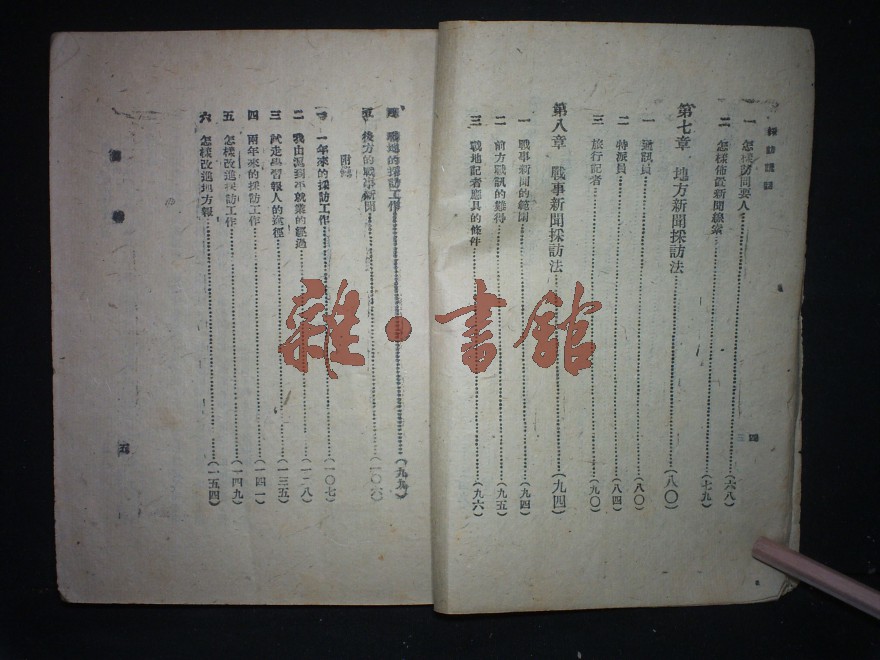 採訪講話
四
一　怎樣訪問要人……(六八)
二　怎樣佈置新聞線索……(七九)
第七章　地方新聞採訪法……(八〇)
一　通訊員……(八〇)
二　特派員……(八四)
三　旅行記者……(九〇)
第八章　戰事新聞採訪法……(九四)
一　戰事新聞的範圍……(九四)
二　前方戰訊的難得……(九五)
三　戰地記者應具的條件……(九六)
四　戰地的採訪工作……(九九)
五　後方的戰事新聞……(一〇六)
附錄
一　一年來的採訪工作……(一〇七)
二　我由溫到不就業的經過……(一二八)
三　試走學習報人的途徑……(一三五)
四　兩年來的採訪工作……(一四一)
五　怎樣改進採訪工作……(一四九)
六　怎樣改進地方報……(一五四)
五
雜·書館